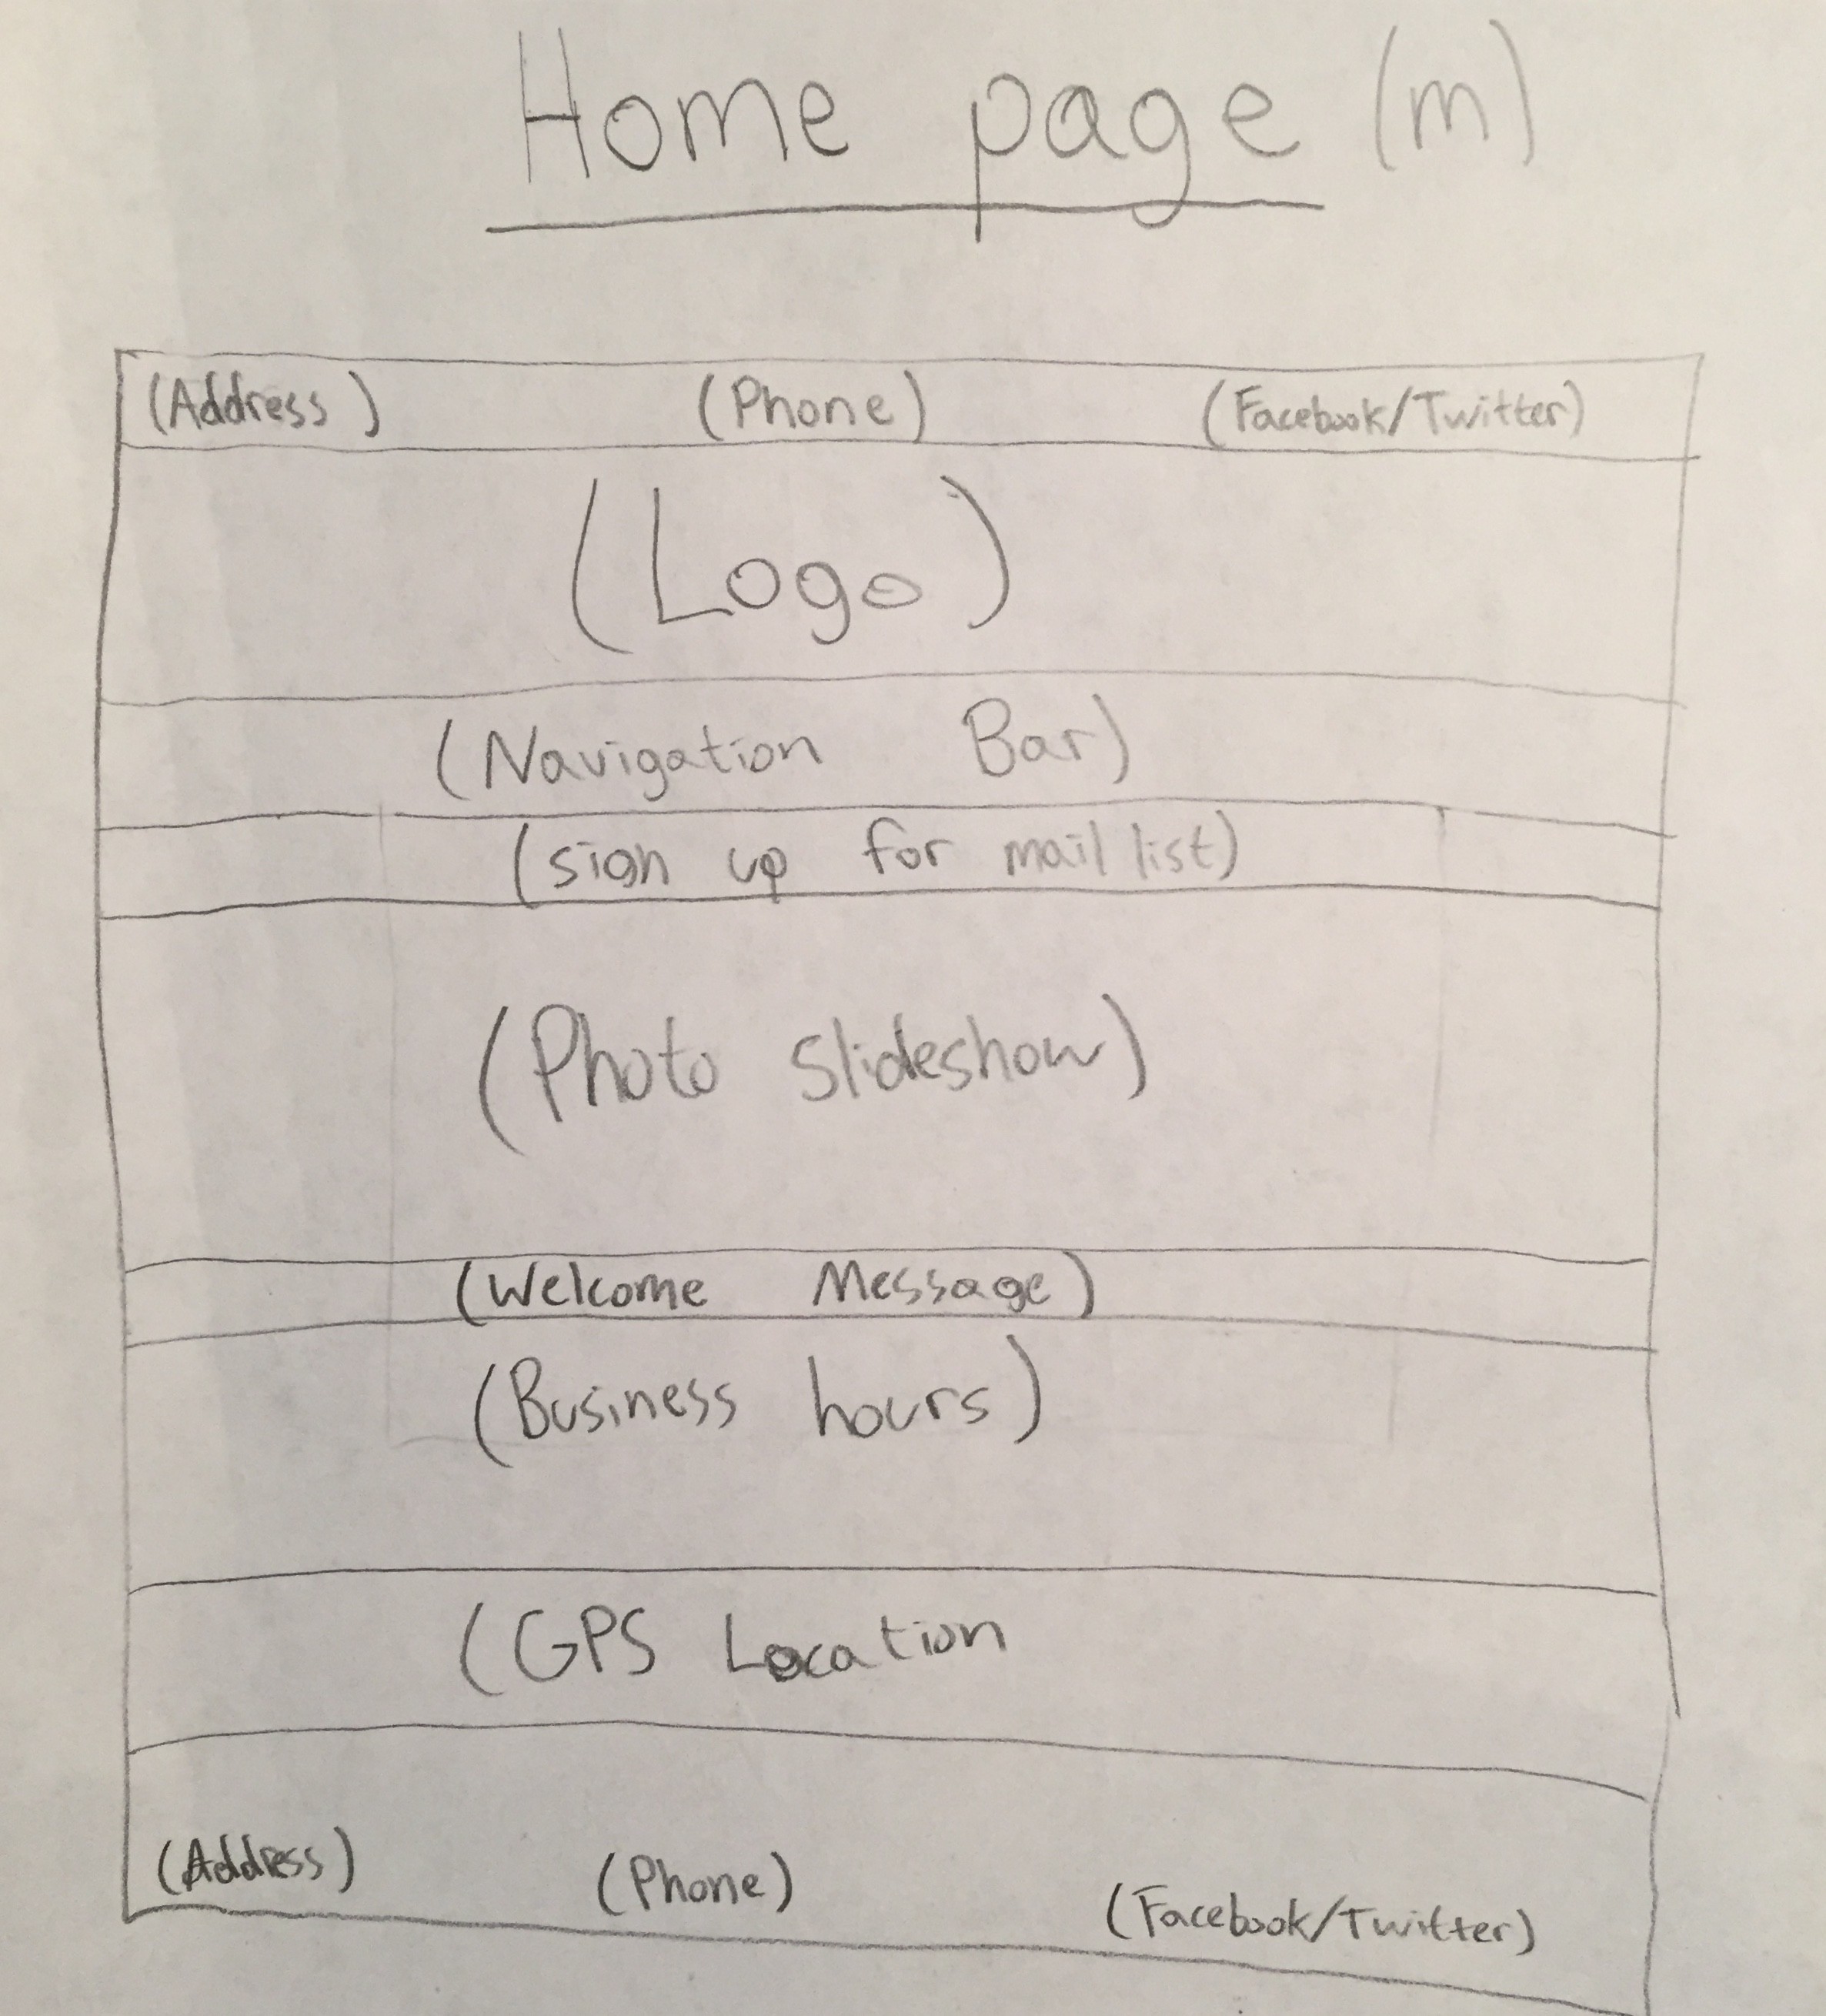 Home page (m)
(Address) (Phone) (Facebook/Twitter)
(Logo)
(Navigation Bar)
(sign up for mail list)
(Photo slideshow)
(Welcome Message)
(Business hours)
(GPS Location
(Address) (Phone) (Facebook/Twitter)